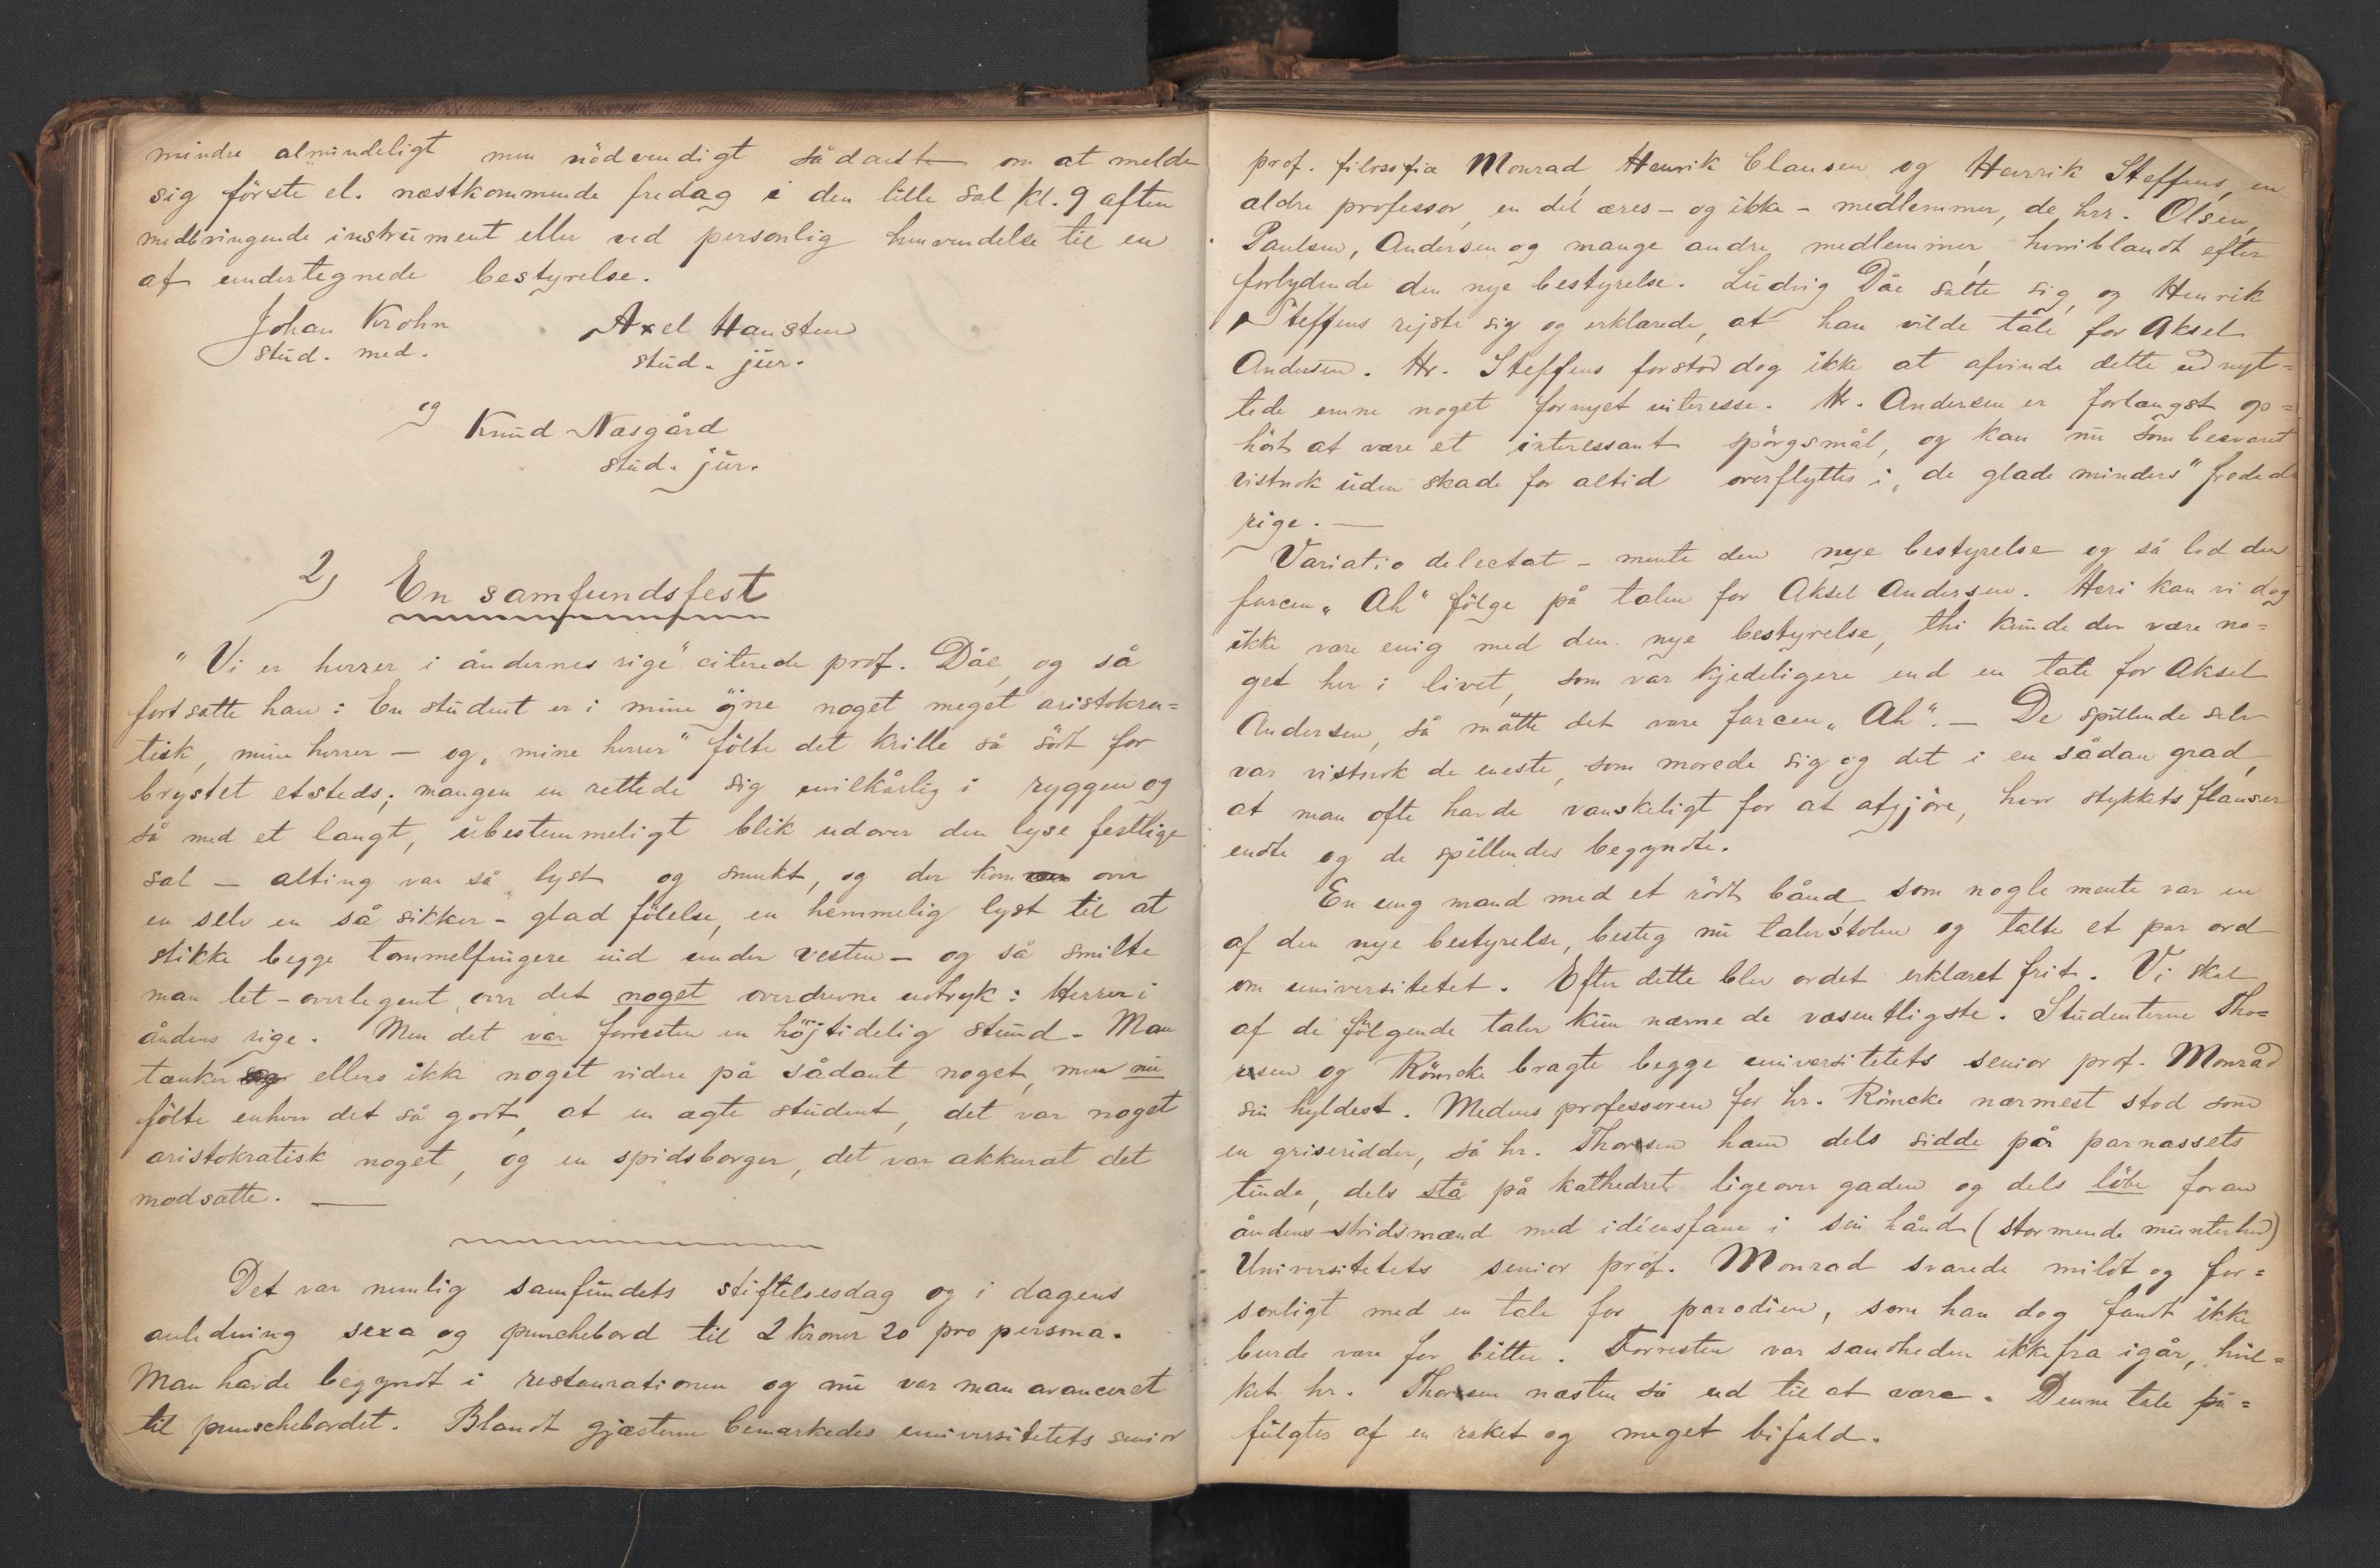 mindre almindeligt men nödvendigt sådant om at melde
sig förste el. næstkommende fredag i den lille sal kl. 9 aften
medbringende instrument eller ved personlig henvendelse til en
af undertegnede bestyrelse.
Johan Krohn
stud. med.
Axel Hansten
stud. jur.
og
Knud Næsgård
stud. jur.
2) En samfundsfest
"Vi er herrer i åndernes rige" citerede prof. Dåe, og så
fortsatte han: En student er i mine öjne noget meget aristokra=
tisk, mine herrer — og „mine herrer" fölte det krille så sört for
brystet etsteds; mangen en rettede sig uvilkårlig i ryggen og
så med et langt, ubestemmeligt blik udover den lyse festlige
sal — alting var så lyst og smukt, og der kom over
en selv en så sikker-glad fölelse, en hemmelig lyst til at
stikke begge tommelfingere ind under vesten — og så smilte
man let-overlegent over det noget overdrevne udtryk: Herrer i
åndens rige. Men det var forresten en höjtidelig stund. Man
tænker ellers ikke noget videre på sådant noget, men nu
fölte enhver det så godt, at en ægte student, det var noget
aristokratisk noget, og en spidsborger, det var akkurat det
modsatte. —
Det var nemlig samfundets stiftelsesdag og i dagens
anledning sexa og punchebord til 2 kroner 20 pro persona.
Man havde begyndt i restaurationen og nu var man avanceret
til punschebordet. Blandt gjæsterne bemærkedes universitetets senior
prof. filosofia Monrad, Henrik Clausen og Henrik Steffens, en
ældre professor, en del æres- og ikke-medlemmer, de hrr. Olsen,
Paulsen, Andersen og mange andre medlemmer, heriblandt efter
forlydende den nye bestyrelse. Ludvig Dåe satte sig, og Henrik
Steffens rejste sig og erklærede, at han vilde tale for Aksel
Andersen. Hr. Steffens forstod dog ikke at afvinde dette udnyt=
tede emne noget fornyet interesse. Hr. Andersen er forlængst op=
hört at være et interessant spörgsmål, og kan nu som besvaret
vistnok uden skade for altid overflyttes i „de glade minders" fredede
rige. —
Variatio delectat — mente den nye bestyrelse og så lod den
farcen „Ah" fölge på talen for Aksel Andersen. Heri kan vi dog
ikke være enig med den nye bestyrelse, thi kunde der være no=
get her i livet, som var kjedeligere end en tale for Aksel
Andersen, så måtte det være farcen „Ah". — De spillende selv
var vistnok de eneste, som morede sig og det i en sådan grad,
at man ofte havde vanskeligt for at afgjöre, hvor stykkets flauser
endte og de spillendes begyndte.
En ung mand med et rödt bånd, som nogle mente var en
af den nye bestyrelse, besteg nu talerstolen og talte et par ord
om universitetet. Efter dette blev ordet erklæret frit. Vi skal
af de fölgende taler kun nævne de væsentligste. Studenterne Tho=
resen og Römcke bragte begge universitetets senior prof. Monrad
sin hyldest. Medens professoren for hr. Römcke nærmest stod som
en griseridder, så hr. Thoresen ham dels sidde på parnassets
tinde, dels stå på kathedret ligeover gaden og dels löbe foran
åndens stridsmænd med idéensfane i sin hånd (stormende munterhed)
Universitetets senior prof. Monrad svarede mildt og for=
sonligt med en tale for parodien, som han dog fandt ikke
burde være for bitter. Forresten var sandheden ikke fra igår, hvil=
ket hr. Thoresen næsten så ud til at være. Denne tale på=
fulgtes af en raket og meget bifald.